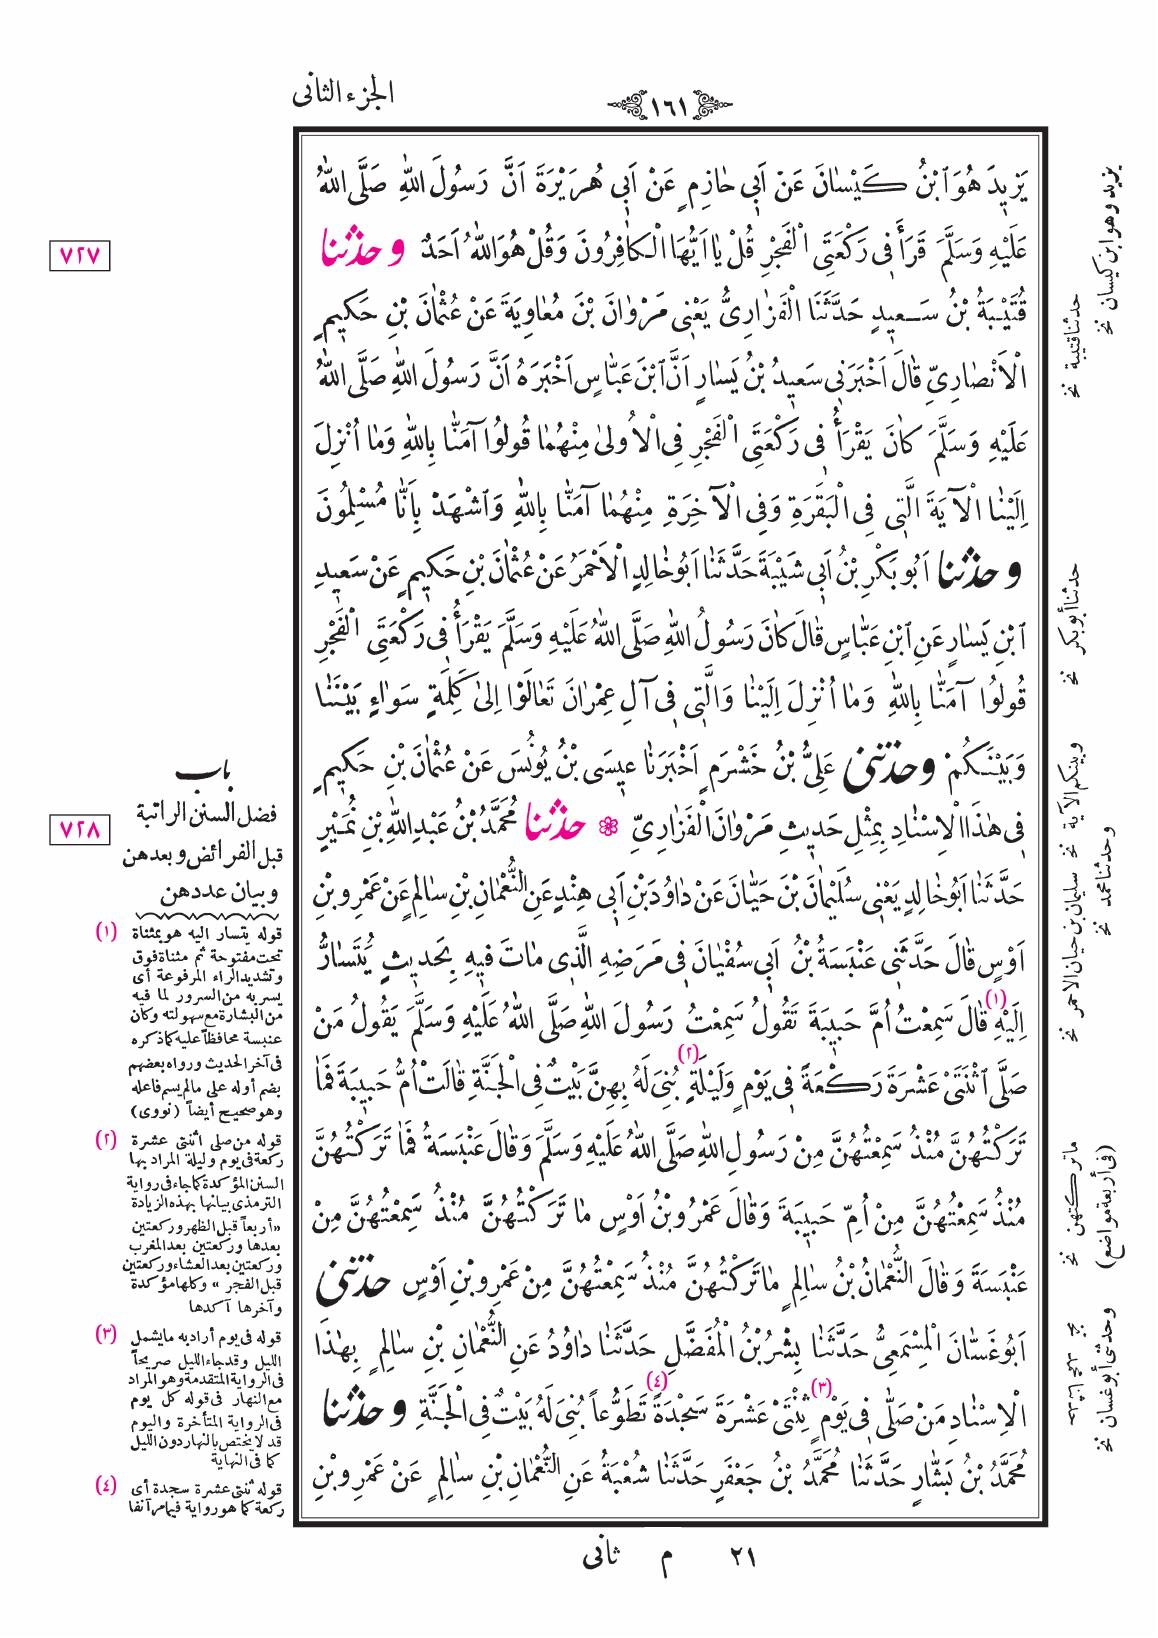 الجزء الثانى
١٦١
يَزِيدَ هُوَ ابْنُ كَيْسَانَ عَنْ أَبِي حَازِمٍ عَنْ أَبِي هُرَيْرَةَ أَنَّ رَسُولَ اللهِ صَلَّى اللهُ
عَلَيْهِ وَسَلَّمَ قَرَأَ فِي رَكْعَتَيِ الْفَجْرِ قُلْ يَا أَيُّهَا الْكَافِرُونَ وَقُلْ هُوَ اللهُ أَحَدٌ وحدثنا
قُتَيْبَةُ بْنُ سَعِيدٍ حَدَّثَنَا الْفَزَارِيُّ يَعْنِي مَرْوَانَ بْنَ مُعَاوِيَةَ عَنْ عُثْمَانَ بْنِ حَكِيمٍ
الْأَنْصَارِيِّ قَالَ أَخْبَرَنِي سَعِيدُ بْنُ يَسَارٍ أَنَّ ابْنَ عَبَّاسٍ أَخْبَرَهُ أَنَّ رَسُولَ اللهِ صَلَّى اللهُ
عَلَيْهِ وَسَلَّمَ كَانَ يَقْرَأُ فِي رَكْعَتَيِ الْفَجْرِ فِي الْأُولَى مِنْهُمَا قُولُوا آمَنَّا بِاللهِ وَمَا أُنْزِلَ
إِلَيْنَا الْآيَةَ الَّتِي فِي الْبَقَرَةِ وَفِي الْآخِرَةِ مِنْهُمَا آمَنَّا بِاللهِ وَاشْهَدْ بِأَنَّا مُسْلِمُونَ
وحدثنا أَبُو بَكْرِ بْنُ أَبِي شَيْبَةَ حَدَّثَنَا أَبُو خَالِدٍ الْأَحْمَرُ عَنْ عُثْمَانَ بْنِ حَكِيمٍ عَنْ سَعِيدِ
ابْنِ يَسَارٍ عَنِ ابْنِ عَبَّاسٍ قَالَ كَانَ رَسُولُ اللهِ صَلَّى اللهُ عَلَيْهِ وَسَلَّمَ يَقْرَأُ فِي رَكْعَتَيِ الْفَجْرِ
قُولُوا آمَنَّا بِاللهِ وَمَا أُنْزِلَ إِلَيْنَا وَالَّتِي فِي آلِ عِمْرَانَ تَعَالَوْا إِلَى كَلِمَةٍ سَوَاءٍ بَيْنَنَا
وَبَيْنَكُمْ وحدثنى عَلِيُّ بْنُ خَشْرَمٍ أَخْبَرَنَا عِيسَى بْنُ يُونُسَ عَنْ عُثْمَانَ بْنِ حَكِيمٍ
فِي هَذَا الْإِسْنَادِ بِمِثْلِ حَدِيثِ مَرْوَانَ الْفَزَارِيِّ ❁ حدثنا مُحَمَّدُ بْنُ عَبْدِ اللهِ بْنِ نُمَيْرٍ
حَدَّثَنَا أَبُو خَالِدٍ يَعْنِي سُلَيْمَانَ بْنَ حَيَّانَ عَنْ دَاوُدَ بْنِ أَبِي هِنْدٍ عَنِ النُّعْمَانِ بْنِ سَالِمٍ عَنْ عَمْرِو بْنِ
أَوْسٍ قَالَ حَدَّثَنِي عَنْبَسَةُ بْنُ أَبِي سُفْيَانَ فِي مَرَضِهِ الَّذِي مَاتَ فِيهِ بِحَدِيثٍ يُتَسَارُّ
إِلَيْهِ (١) قَالَ سَمِعْتُ أُمَّ حَبِيبَةَ تَقُولُ سَمِعْتُ رَسُولَ اللهِ صَلَّى اللهُ عَلَيْهِ وَسَلَّمَ يَقُولُ مَنْ
صَلَّى اثْنَتَيْ عَشْرَةَ رَكْعَةً فِي يَوْمٍ وَلَيْلَةٍ (٢) بُنِيَ لَهُ بِهِنَّ بَيْتٌ فِي الْجَنَّةِ قَالَتْ أُمُّ حَبِيبَةَ فَمَا
تَرَكْتُهُنَّ مُنْذُ سَمِعْتُهُنَّ مِنْ رَسُولِ اللهِ صَلَّى اللهُ عَلَيْهِ وَسَلَّمَ وَقَالَ عَنْبَسَةُ فَمَا تَرَكْتُهُنَّ
مُنْذُ سَمِعْتُهُنَّ مِنْ أُمِّ حَبِيبَةَ وَقَالَ عَمْرُو بْنُ أَوْسٍ مَا تَرَكْتُهُنَّ مُنْذُ سَمِعْتُهُنَّ مِنْ
عَنْبَسَةَ وَقَالَ النُّعْمَانُ بْنُ سَالِمٍ مَا تَرَكْتُهُنَّ مُنْذُ سَمِعْتُهُنَّ مِنْ عَمْرِو بْنِ أَوْسٍ حدثنى
أَبُو غَسَّانَ الْمِسْمَعِيُّ حَدَّثَنَا بِشْرُ بْنُ الْمُفَضَّلِ حَدَّثَنَا دَاوُدُ عَنِ النُّعْمَانِ بْنِ سَالِمٍ بِهَذَا
الْإِسْنَادِ مَنْ صَلَّى فِي يَوْمٍ (٣) ثِنْتَيْ عَشْرَةَ سَجْدَةً (٤) تَطَوُّعًا بُنِيَ لَهُ بَيْتٌ فِي الْجَنَّةِ وحدثنا
مُحَمَّدُ بْنُ بَشَّارٍ حَدَّثَنَا مُحَمَّدُ بْنُ جَعْفَرٍ حَدَّثَنَا شُعْبَةُ عَنِ النُّعْمَانِ بْنِ سَالِمٍ عَنْ عَمْرِو بْنِ
يزيد وهو ابن كيسان نخ
حدثنا قتيبة نخ
حدثنا أبو بكر نخ
وبينكم الآية نخ سليمان بن حيان الاحمر نخ
وحدثنا محمد نخ
ما تركتهن نخ
(في أربعة مواضع)
وحدثنى أبو غسان نخ
٧٢٧
٧٢٨
باب
فضل السنن الراتبة
قبل الفرائض وبعدهن
وبيان عددهن
(١) قوله يتسار اليه هو بمثناة
تحت مفتوحة ثم مثناة فوق
وتشديد الراء المرفوعة أى
يسر به من السرور لما فيه
من البشارة مع سهولته وكان
عنبسة محافظاً عليه كما ذكره
فى آخر الحديث ورواه بعضهم
بضم أوله على مالم يسم فاعله
وهو صحيح أيضاً (نووى)
(٢) قوله من صلى اثنتى عشرة
ركعة فى يوم وليلة المراد بها
السنن المؤكدة كما جاء فى رواية
الترمذى بيانها بهذه الزيادة
«أربعاً قبل الظهر وركعتين
بعدها وركعتين بعد المغرب
وركعتين بعد العشاء وركعتين
قبل الفجر» وكلها مؤكدة
وآخرها آكدها
(٣) قوله فى يوم أراد به ما يشمل
الليل وقد جاء الليل صريحاً
فى الرواية المتقدمة وهو المراد
مع النهار فى قوله كل يوم
فى الرواية المتأخرة واليوم
قد لا يختص بالنهار دون الليل
كما فى النهاية
(٤) قوله ثنتى عشرة سجدة أى
ركعة كما هو رواية فيما مر آنفا
٢١ م ثانى